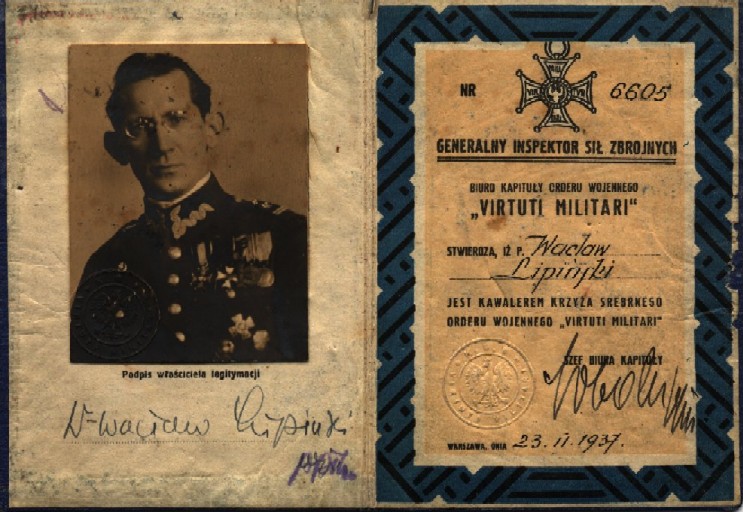 Podpis właściciela legitymacji
Dr Wacław Lipiński
NR 6605
GENERALNY INSPEKTOR SIŁ ZBROJNYCH
BIURO KAPITUŁY ORDERU WOJENNEGO
„VIRTUTI MILITARI“
STWIERDZA, IŻ P. Wacław
Lipiński
JEST KAWALEREM KRZYŻA SREBRNEGO
ORDERU WOJENNEGO „VIRTUTI MILITARI“
SZEF BIURA KAPITUŁY
WARSZAWA, DNIA 23.II.1937.